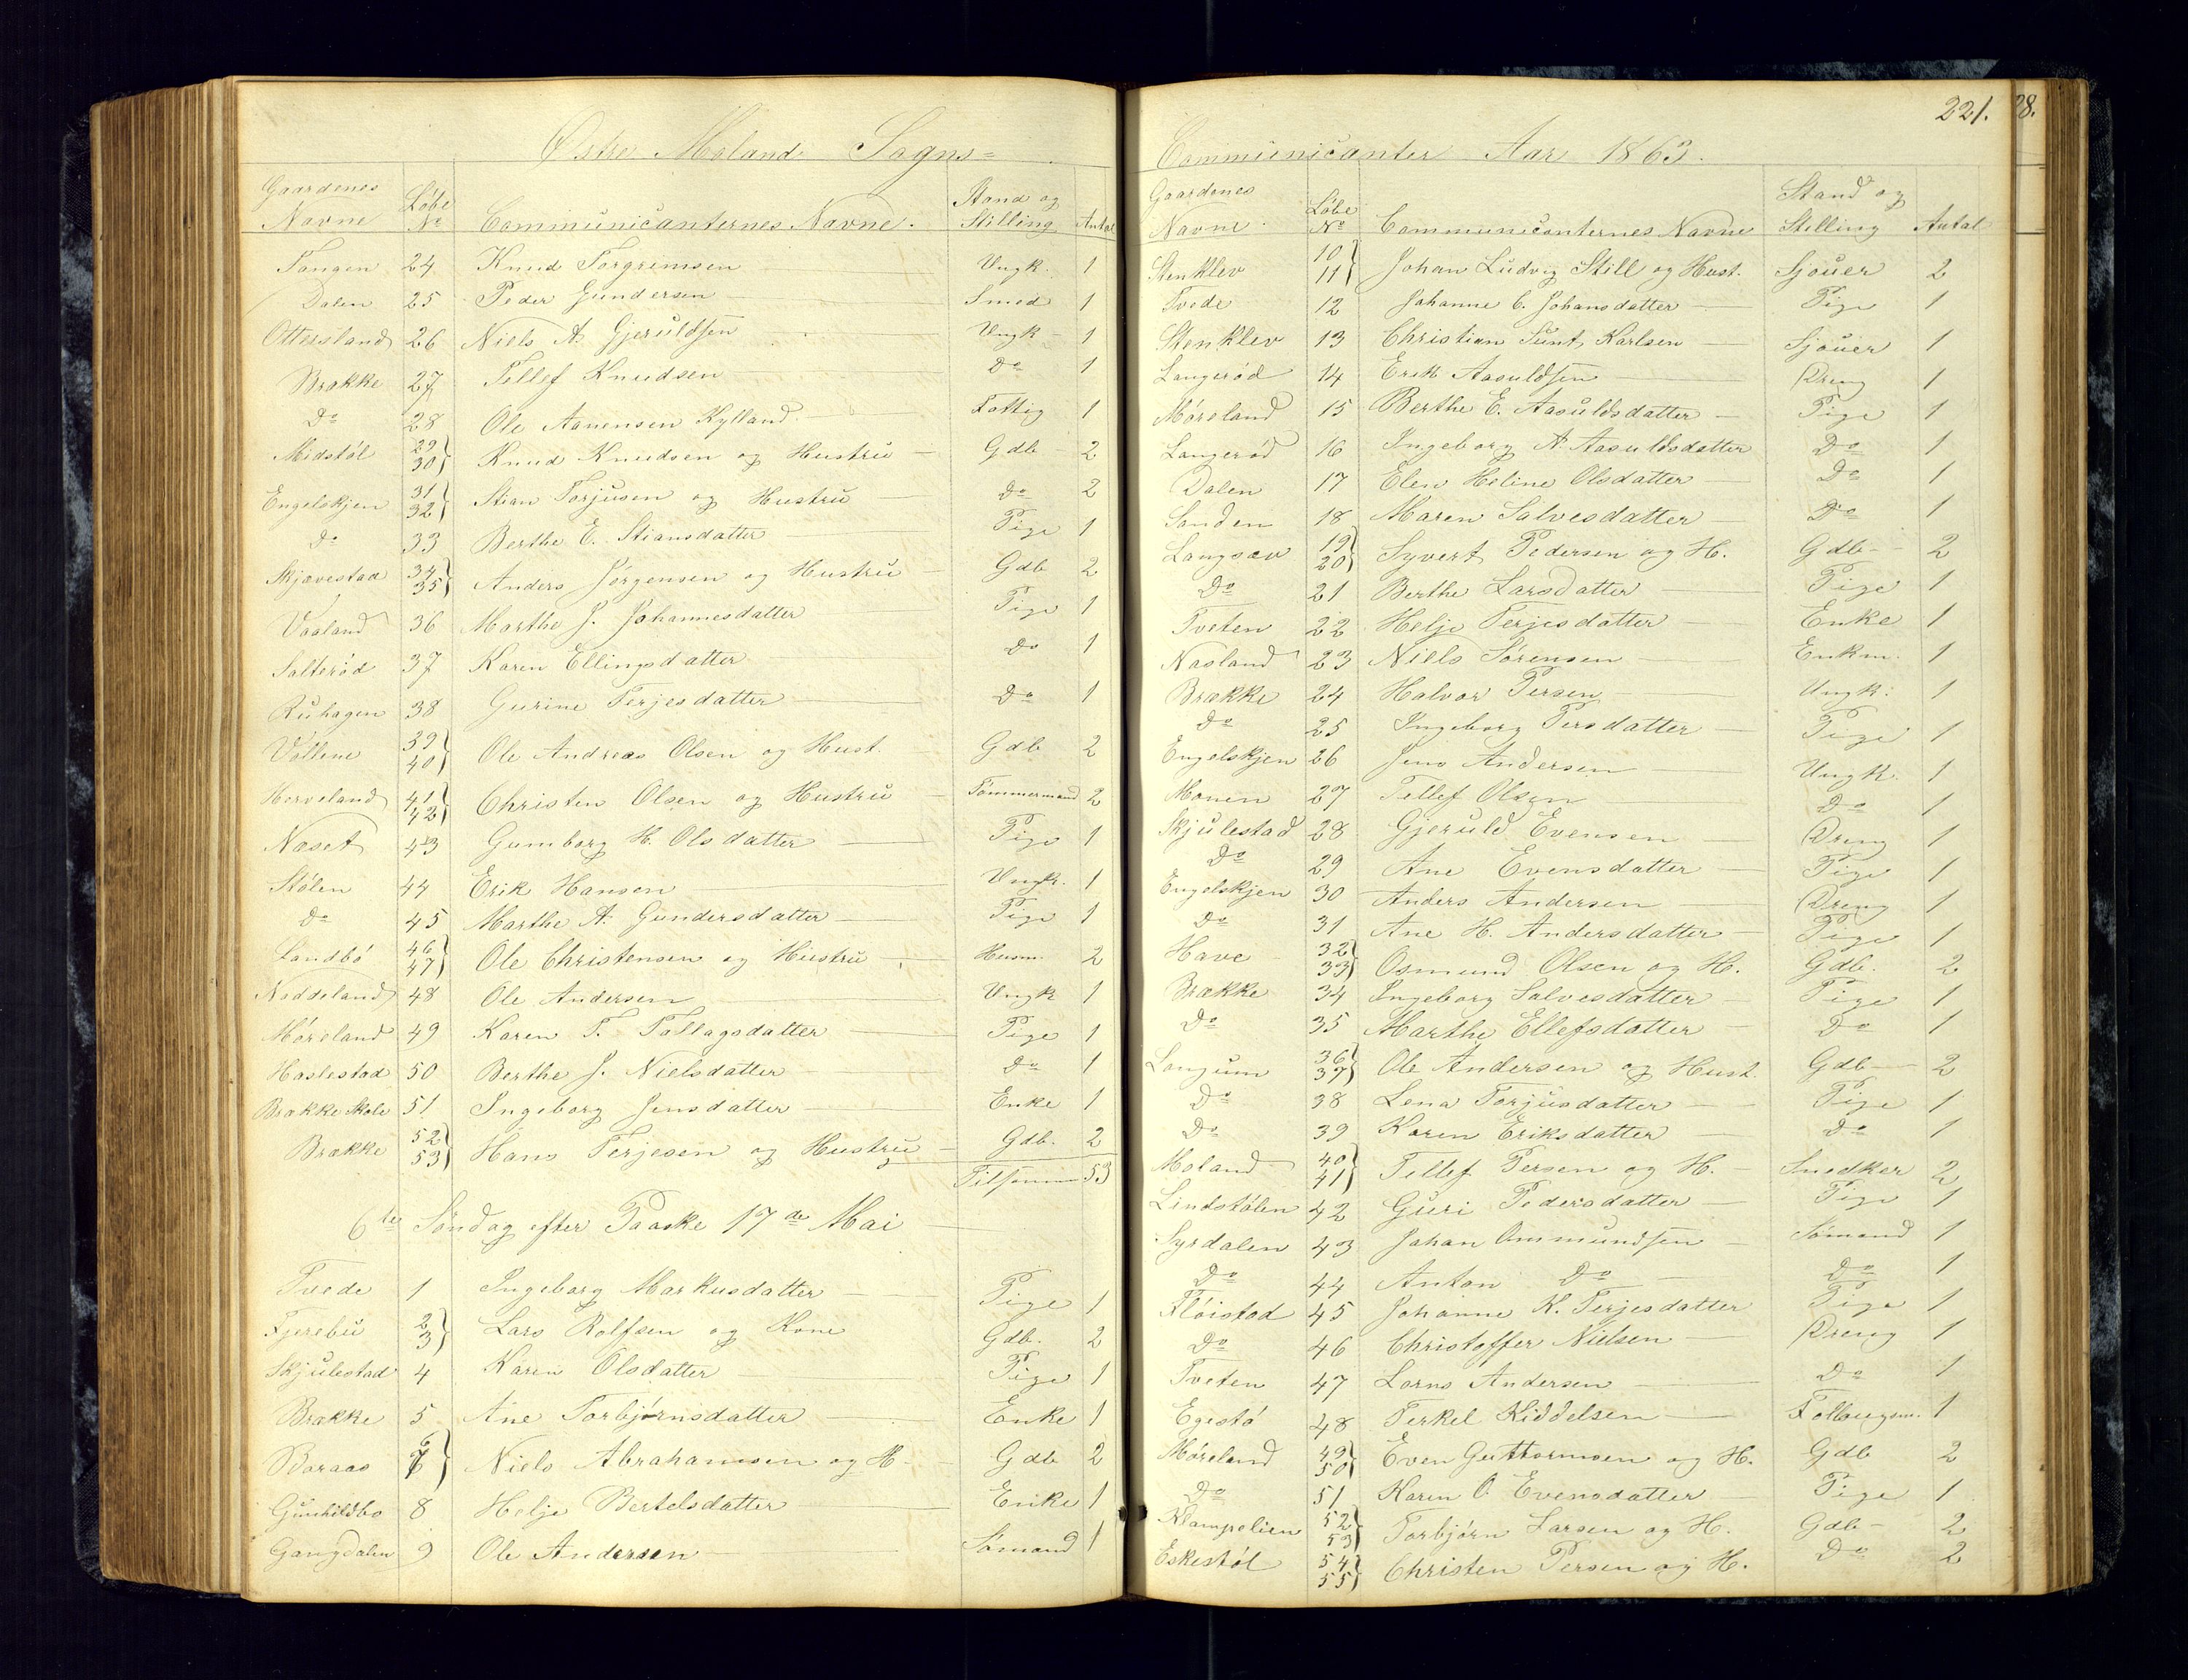 Østre Moland Sogns=
Gaardenes Navne Løbe No Communicanternes Navne. Stand og Stilling Antal
Tangen 24 Knud Torgrimsen Ungk. 1
Dalen 25 Peder Gundersen Smed 1
Ottersland 26 Niels A. Gjeruldsen Ungk 1
Brække 27 Tellef Knudsen Do 1
Do 28 Ole Aanensen Kylland Fattig 1
Midstøl 29 30} Knud Knudsen og Hustru Gdb 2
Engelskjen 31 32} Stian Torjusen og Hustru Do 2
Do 33 Berthe E. Stiansdatter Pige 1
Skjævestad 34 35} Anders Jørgensen og Hustru Gdb 2
Vaaland 36 Marthe J. Johannesdatter Pige 1
Salterød 37 Karen Ellingsdatter Do 1
Ruhagen 38 Gurine Terjesdatter Do 1
Vollene 39 40} Ole Andreas Olsen og Hust. Gdb 2
Herveland 41 42} Christen Olsen og Hustru Tømmermand 2
Næset 43 Gumborg H. Olsdatter Pige 1
Stølen 44 Erik Hansen Ungk. 1
Do 45 Marthe A. Gundersdatter Pige 1
Landbø 46 47} Ole Christensen og Hustru Husm. 2
Næddeland 48 Ole Andersen Ungk 1
Møreland 49 Karen T. Tallagsdatter Pige 1
Haslestad 50 Berthe J. Nielsdatter Do 1
Brække Skole 51 Ingeborg Jensdatter Enke 1
Brække 52 53} Hans Terjesen og Hustru Gdb. 2
Tilsammen 53
6te Søndag efter Paaske 17de Mai
Tvede 1 Ingeborg Markusdatter Pige 1
Fjerebu 2 3} Lars Rolfsen og Kone Gdb. 2
Skjulestad 4 Karen Olsdatter Pige 1
Brække 5 Ane Torbjørnsdatter Enke 1
Baraas 6 7} Niels Abrahamsen og H. Gdb 2
Gunhildbo 8 Helje Bertelsdatter Enke 1
Gangdalen 9 Ole Andersen Sømand 1
221.
28.
Communicanter Aar 1863.
Gaardenes Navne Løbe No Communicanternes Navne Stand og Stilling Antal
Stenklev 10 11} Johan Ludvig Still og Hust. Sjouer 2
Tvede 12 Johanne C. Johansdatter Pige 1
Stenklev 13 Christian Sunt, Karlsen Sjouer 1
Langerød 14 Erik Aasuldsen Dreng 1
Møreland 15 Berthe E. Aasuldsdatter Pige 1
Langerød 16 Ingeborg A. Aasuldsdatter Do 1
Dalen 17 Elen Heline Olsdatter Do 1
Sanden 18 Maren Salvesdatter Do 1
Langsæv 19 20} Syvert Pedersen og H. Gdb 2
Do 21 Berthe Larsdatter Pige 1
Tveten 22 Helje Terjesdatter Enke 1
Næsland 23 Niels Sørensen Enkm. 1
Brække 24 Halvor Persen Ungk. 1
Do 25 Ingeborg Persdatter Pige 1
Engelskjen 26 Jens Andersen Ungk. 1
Monen 27 Tellef Olsen Do 1
Skjulestad 28 Gjeruld Evensen Dreng 1
Do 29 Ane Evensdatter Pige 1
Engelskjen 30 Anders Andersen Dreng 1
Do 31 Ane H. Andersdatter Pige 1
Have 32 33} Osmund Olsen og H. Gdb. 2
Brække 34 Ingeborg Salvesdatter Pige 1
Do 35 Marthe Ellefsdatter Do 1
Langum 36 37} Ole Andersen og Hust. Gdb 2
Do 38 Lena Torjusdatter Pige 1
Do 39 Karen Eriksdatter Do 1
Moland 40 41} Tellef Persen og H. Snedker 2
Lindstølen 42 Guri Pedersdatter Pige 1
Syrdalen 43 Johan Ommundsen Sømand 1
Do 44 Anton Do Do 1
Fløistad 45 Johanne K. Terjesdatter Pige 1
Do 46 Christoffer Nielsen Dreng 1
Tveten 47 Lorns Andersen Do 1
Egestø 48 Terkel Kiddelsen 1
Møreland 49 50} Even Guttormsen og H. Gdb 2
Do 51 Karen O. Evensdatter Pige 1
Klampelien 52 53} Torbjørn Larsen og H. Gdb 2
Eskestøl 54 55} Christen Persen og H. Do 2